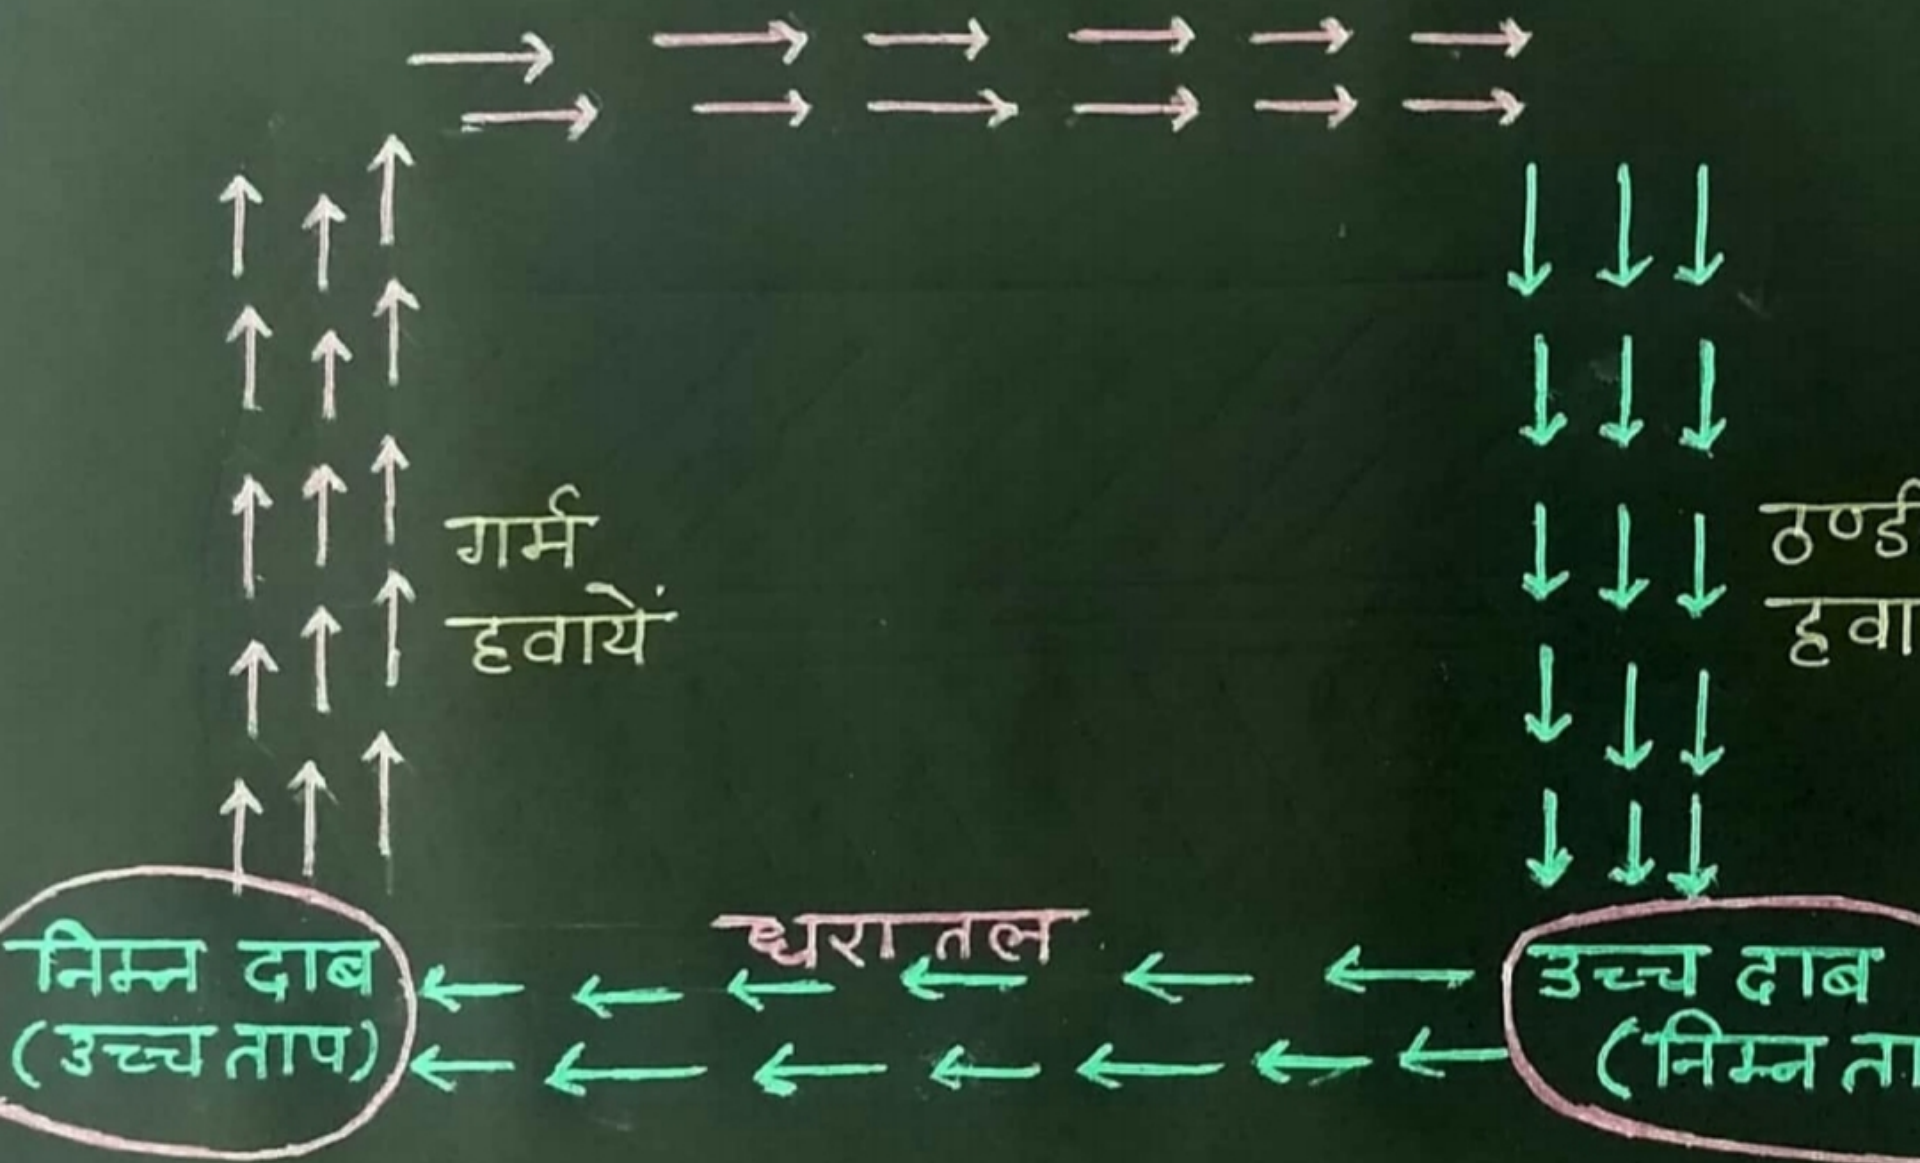 गर्म
हवायें
धरातल
निम्न दाब
(उच्च ताप)
उच्च दाब
(निम्न